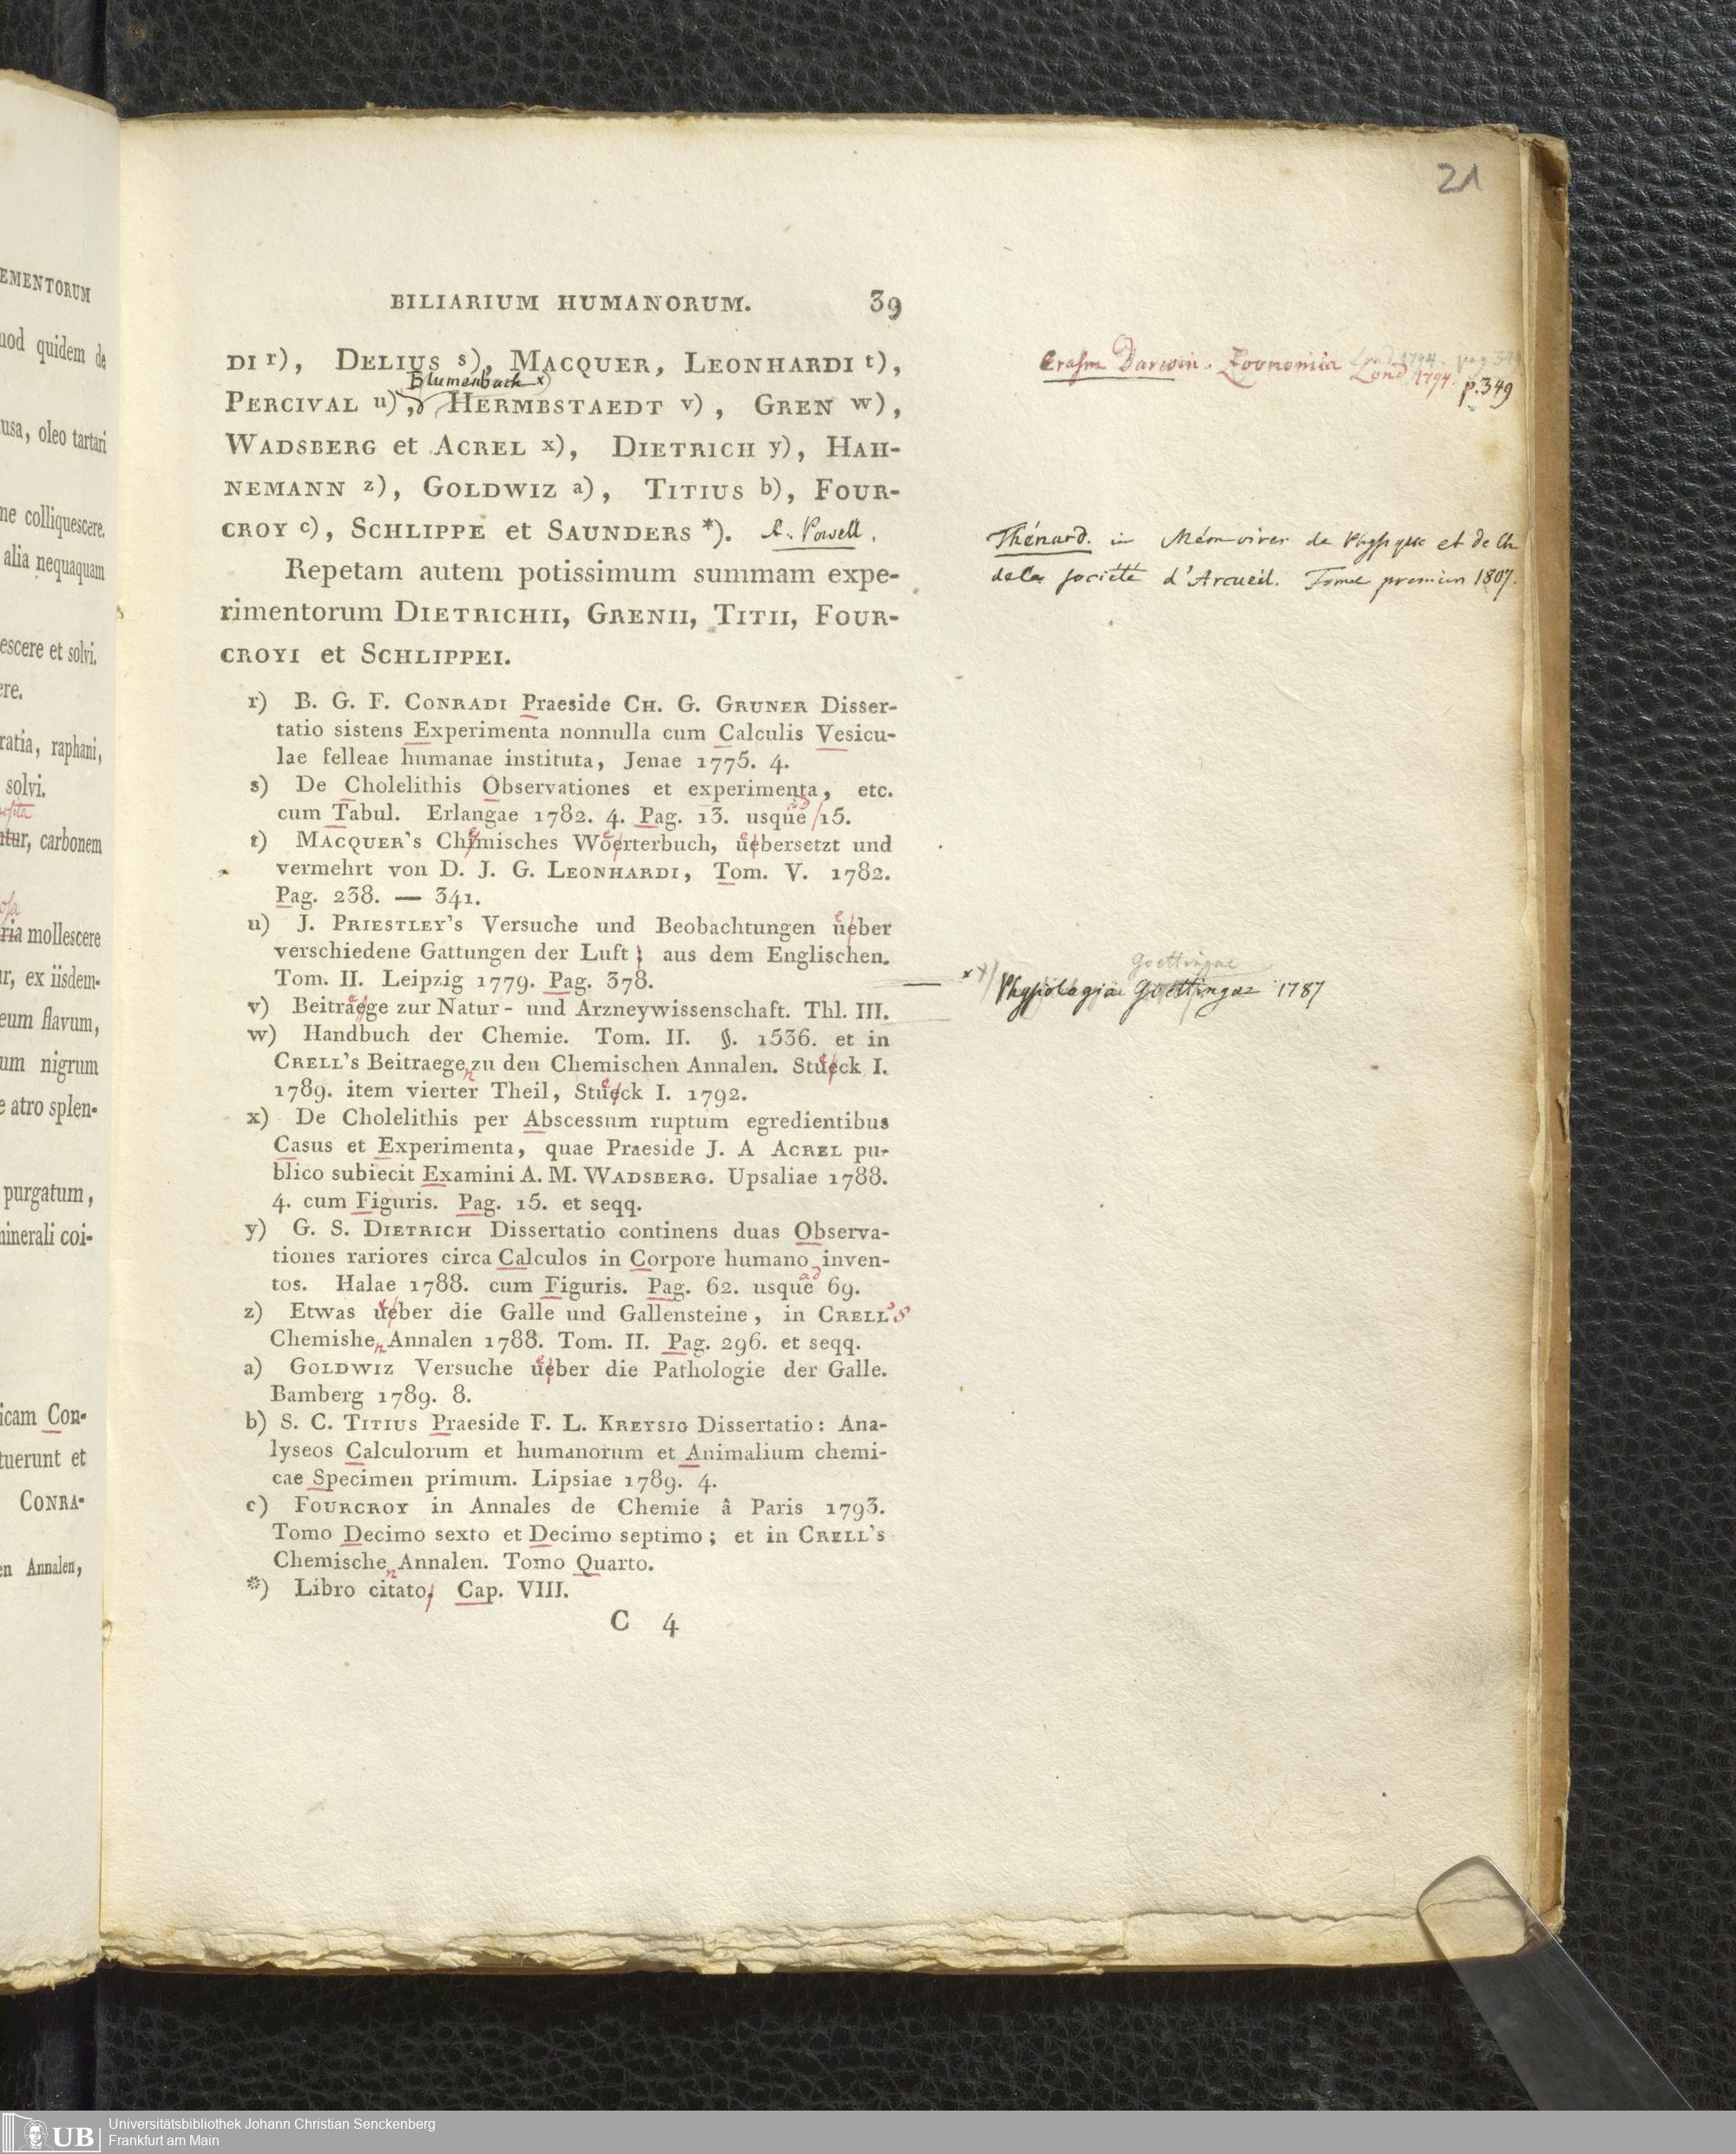 21
EMENTORUM
uod quidem de
usa, oleo tartari
me colliquescere.
alia nequaquam
escere et solvi.
ere.
ratia, raphani,
solvi.
tur, carbonem
ria mollescere
ur, ex iisdem-
eum flavum,
um nigrum
e atro splen-
purgatum,
minerali coi-
icam Con-
tuerunt et
CONRA-
en Annalen,
BILIARIUM HUMANORUM. 39
DI r), DELIUS s), MACQUER, LEONHARDI t),
Blumenbach x)
PERCIVAL u), HERMBSTAEDT v), GREN w),
WADSBERG et ACREL x), DIETRICH y), HAH-
NEMANN z), GOLDWIZ a), TITIUS b), FOUR-
CROY c), SCHLIPPE et SAUNDERS *). A. Powell.
Repetam autem potissimum summam expe-
rimentorum DIETRICHII, GRENII, TITII, FOUR-
CROYI et SCHLIPPEI.
r) B. G. F. CONRADI Praeside CH. G. GRUNER Disser-
tatio sistens Experimenta nonnulla cum Calculis Vesicu-
lae felleae humanae instituta, Jenae 1775. 4.
s) De Cholelithis Observationes et experimenta, etc.
cum Tabul. Erlangae 1782. 4. Pag. 13. usque ad 15.
t) MACQUER'S Chymisches Woerterbuch, uebersetzt und
vermehrt von D. J. G. LEONHARDI, Tom. V. 1782.
Pag. 238. — 341.
u) J. PRIESTLEY'S Versuche und Beobachtungen ueber
verschiedene Gattungen der Luft; aus dem Englischen.
Tom. II. Leipzig 1779. Pag. 378.
v) Beitraege zur Natur- und Arzneywissenschaft. Thl. III.
w) Handbuch der Chemie. Tom. II. §. 1536. et in
CRELL'S Beitraegen zu den Chemischen Annalen. Stueck I.
1789. item vierter Theil, Stueck I. 1792.
x) De Cholelithis per Abscessum ruptum egredientibus
Casus et Experimenta, quae Praeside J. A ACREL pu-
blico subiecit Examini A. M. WADSBERG. Upsaliae 1788.
4. cum Figuris. Pag. 15. et seqq.
y) G. S. DIETRICH Dissertatio continens duas Observa-
tiones rariores circa Calculos in Corpore humano inven-
tos. Halae 1788. cum Figuris. Pag. 62. usque ad 69.
z) Etwas ueber die Galle und Gallensteine, in CRELL's
Chemishen Annalen 1788. Tom. II. Pag. 296. et seqq.
a) GOLDWIZ Versuche ueber die Pathologie der Galle.
Bamberg 1789. 8.
b) S. C. TITIUS Praeside F. L. KREYSIG Dissertatio: Ana-
lyseos Calculorum et humanorum et Animalium chemi-
cae Specimen primum. Lipsiae 1789. 4.
c) FOURCROY in Annales de Chemie â Paris 1793.
Tomo Decimo sexto et Decimo septimo; et in CRELL'S
Chemischen Annalen. Tomo Quarto.
*) Libro citato, Cap. VIII.
C 4
Erasm Darwin. Zoonomia Lond 1794. p. 349
Thénard. in Mémoires de Physique et de Ch
de la societé d'Arcueil. Tome premier 1807.
Goettingae
x) Physiologiae Goettingae 1787
UB
Universitätsbibliothek Johann Christian Senckenberg
Frankfurt am Main